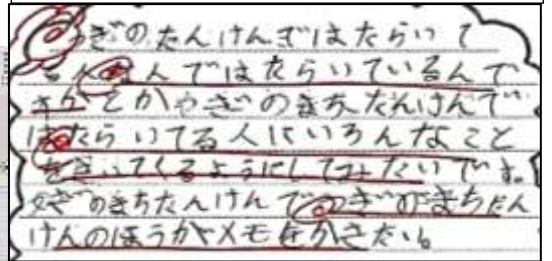 つぎのたんけんではたらいて
る人なんではたらいているんで
すかとかやぎのまちたんけんで
はたらいてる人にいろんなこと
をきいてくるようにしてみたいです。
次ぎのまちたんけんでつぎのまちたん
けんのほうがメモをかきたい。